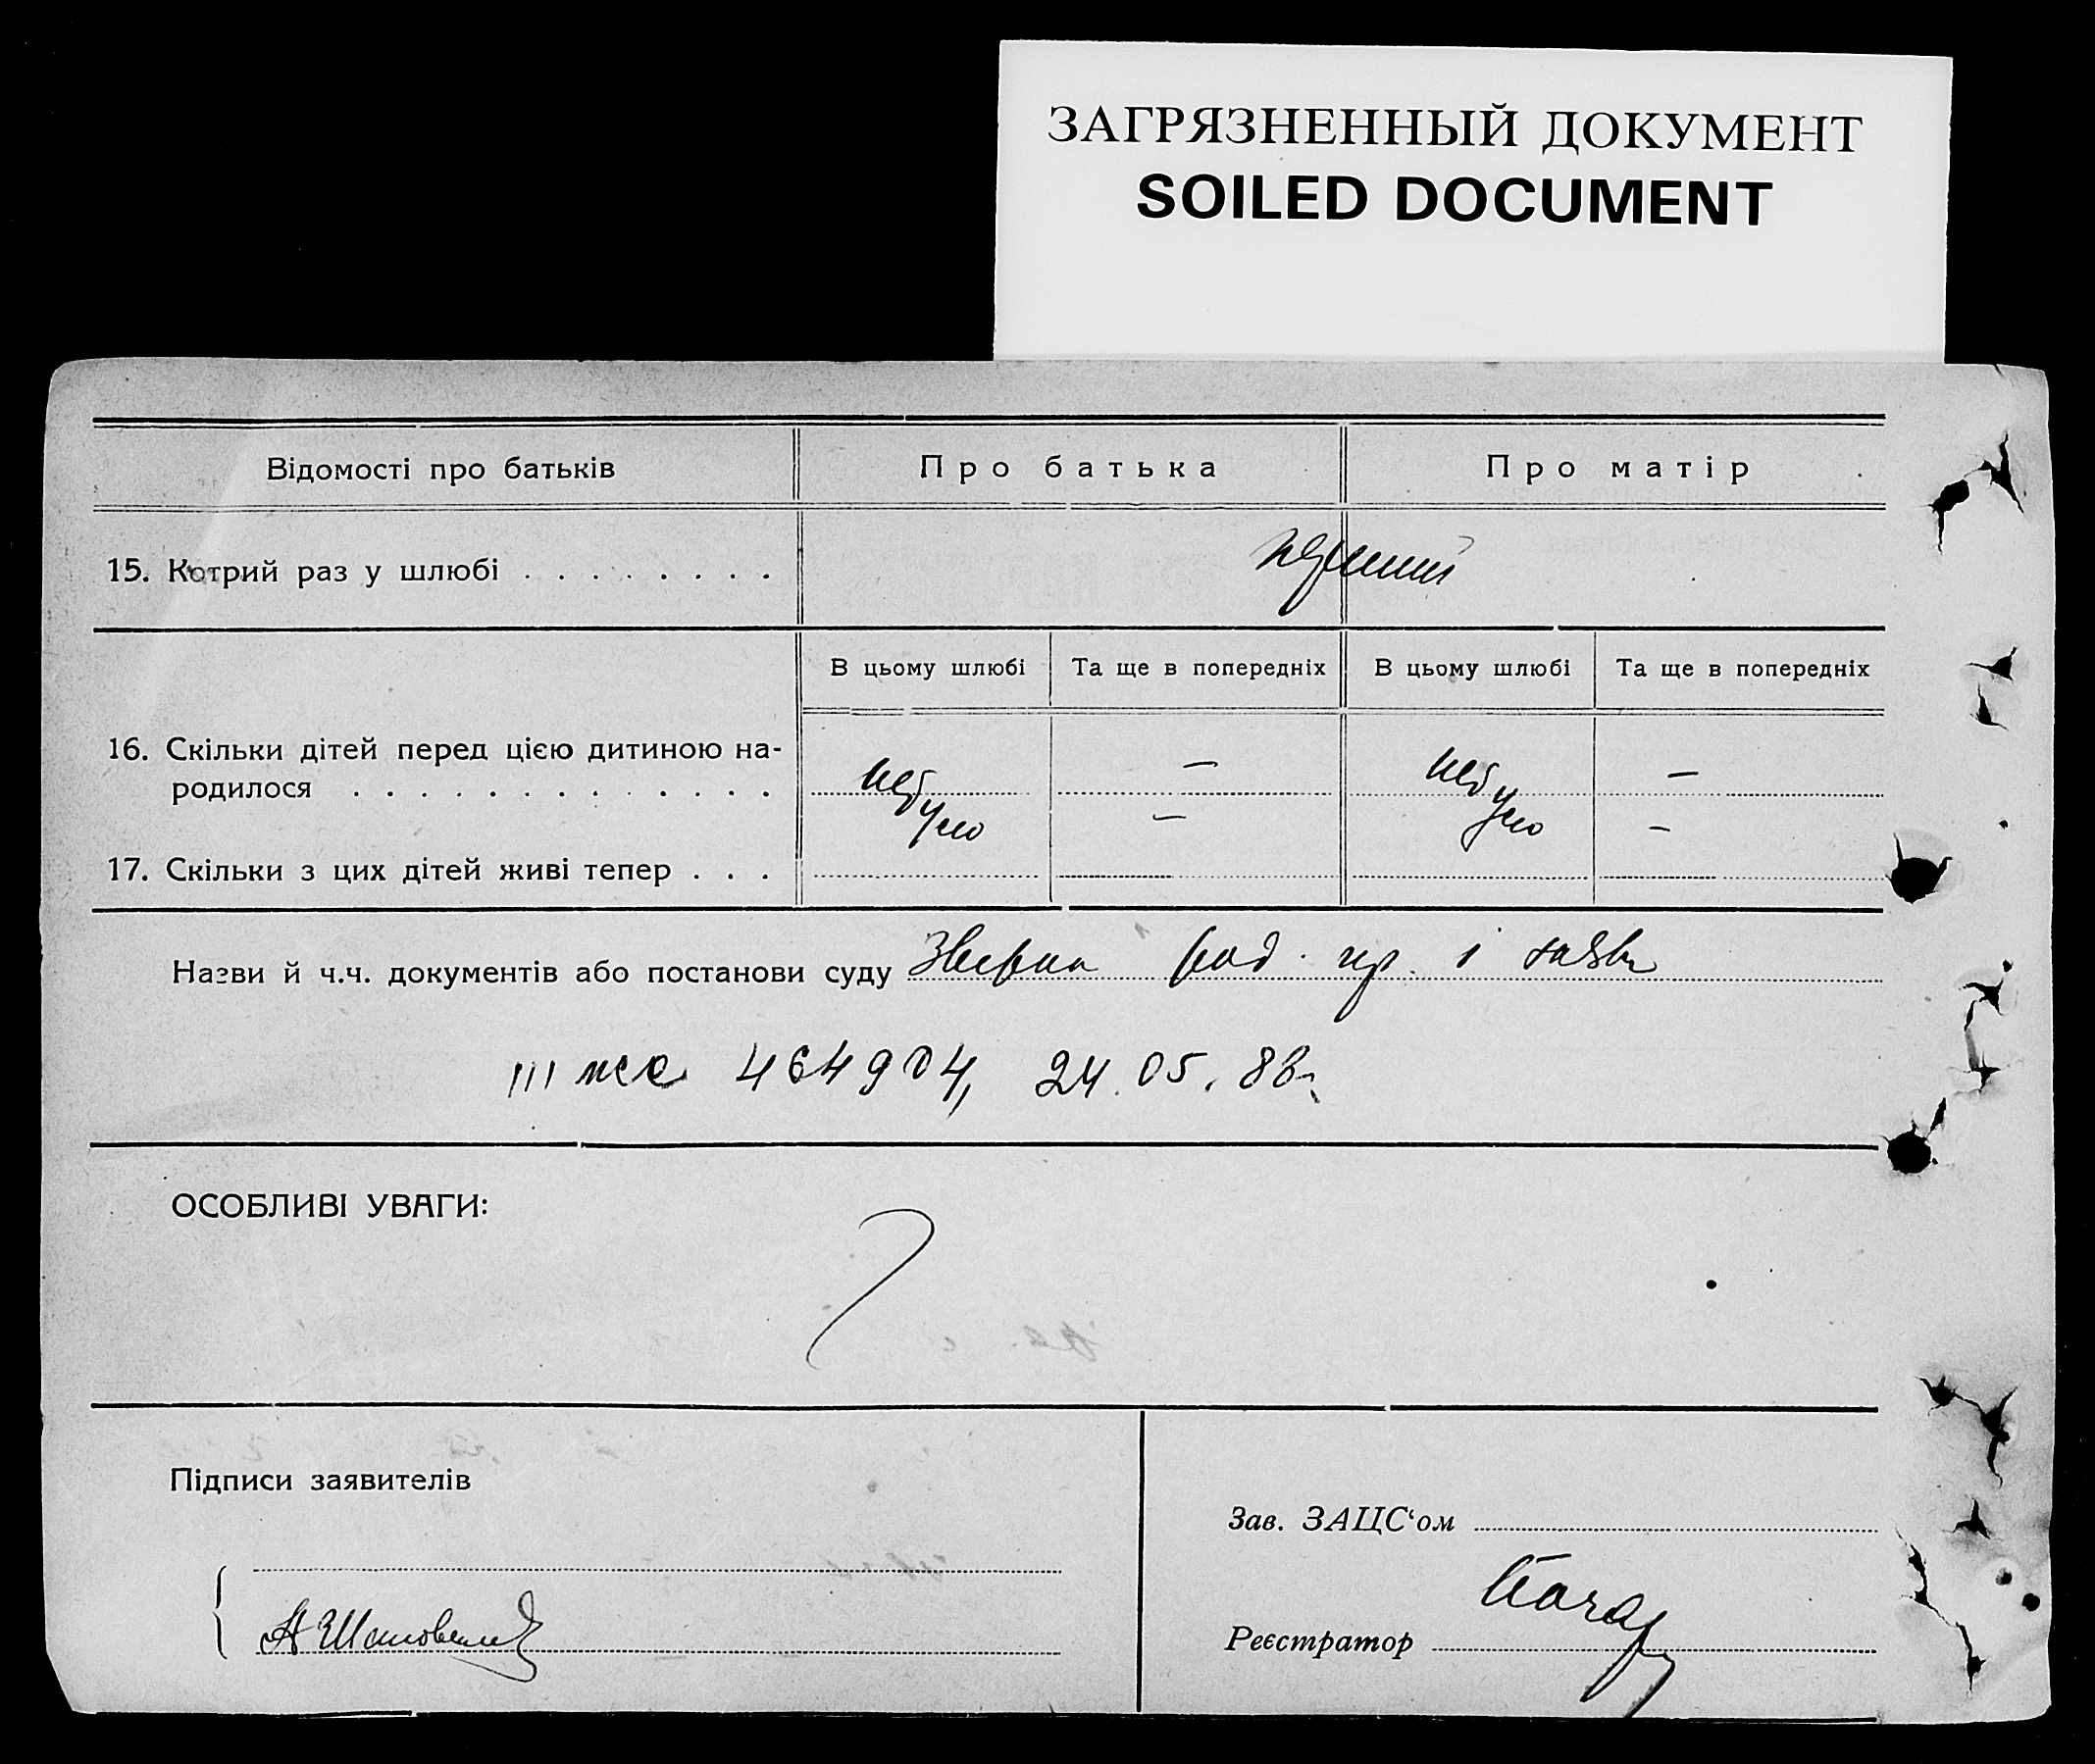 ЗАГРЯЗНЕННЫЙ ДОКУМЕНТ
SOILED DOCUMENT
Відомості про батьків Про батька Про матір
15. Котрий раз у шлюбі . . . . . . . . перший
В цьому шлюбі Та ще в попередніх В цьому шлюбі Та ще в попередніх
16. Скільки дітей перед цією дитиною на-
родилося . . . . . . . . . . . . . не було — не було —
— —
17. Скільки з цих дітей живі тепер . . .
Назви й ч.ч. документів або постанови суду і
III 464904, 24.05.88г.
ОСОБЛИВІ УВАГИ:
Підписи заявителів
Зав. ЗАЦС‘ом
Реєстратор